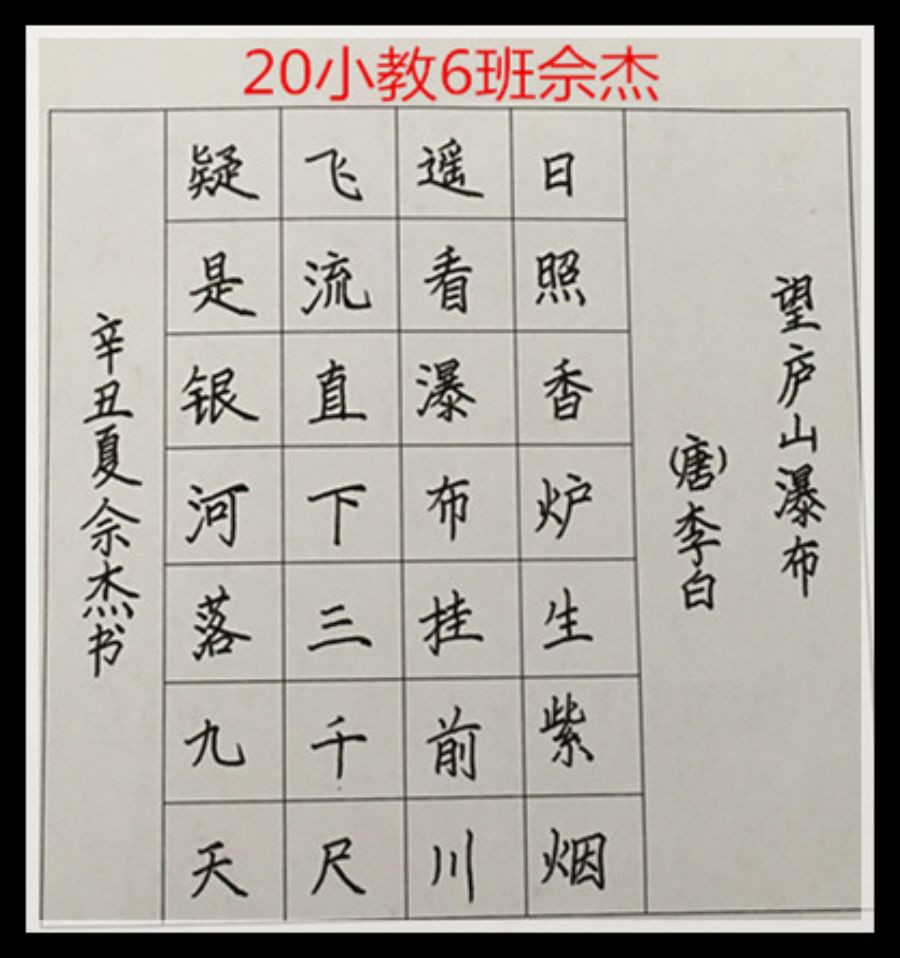 20小教6班佘杰
望庐山瀑布
(唐)李白
日照香炉生紫烟
遥看瀑布挂前川
飞流直下三千尺
疑是银河落九天
辛丑夏佘杰书